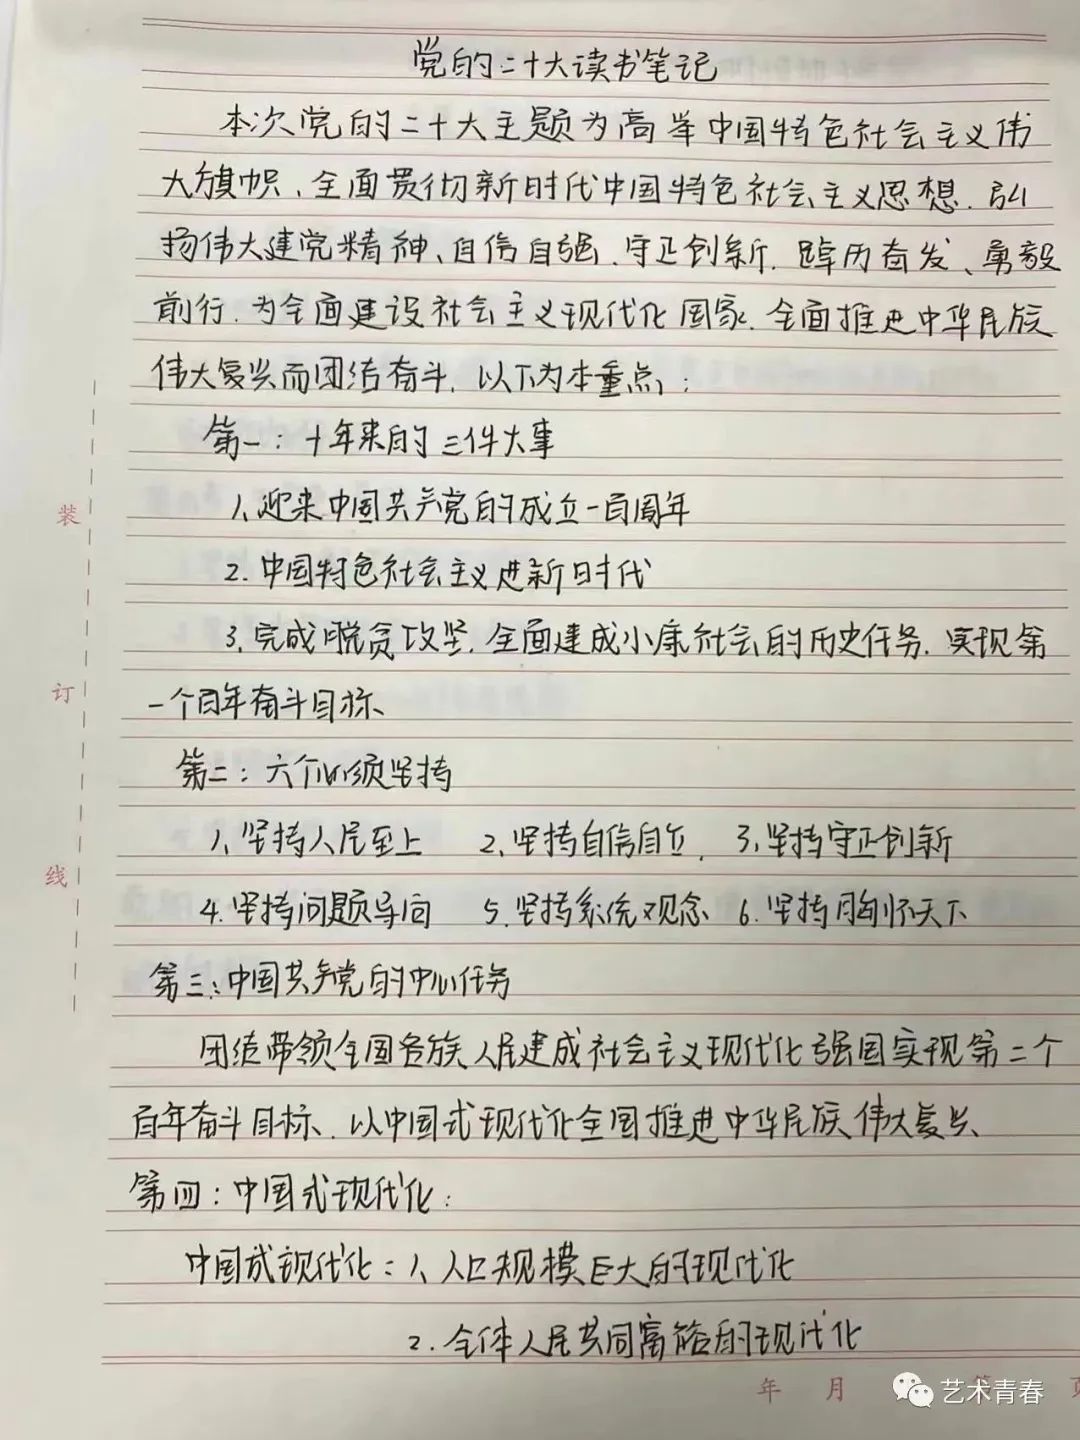 党的二十大读书笔记
本次党的二十大主题为高举中国特色社会主义伟
大旗帜、全面贯彻新时代中国特色社会主义思想.弘
扬伟大建党精神、自信自强.守正创新.踔厉奋发、勇毅
前行.为全面建设社会主义现代化国家.全面推进中华民族
伟大复兴而团结奋斗.以下为本重点:
第一:十年来的三件大事
1、迎来中国共产党的成立一百周年
2.中国特色社会主义进新时代
3.完成脱贫攻坚.全面建成小康社会的历史任务.实现第
一个百年奋斗目标、
第二:六个必须坚持
1、坚持人民至上 2、坚持自信自立. 3、坚持守正创新
4.坚持问题导向 5.坚持系统观念 6.坚持胸怀天下
第三:中国共产党的中心任务
团结带领全国各族人民建成社会主义现代化强国实现第二个
百年奋斗目标.以中国式现代化全国推进中华民族伟大复兴、
第四:中国式现代化:
中国式现代化:1、人口规模巨大的现代化
2.全体人民共同富裕的现代化
装
订
线
年 月 第 页
艺术青春